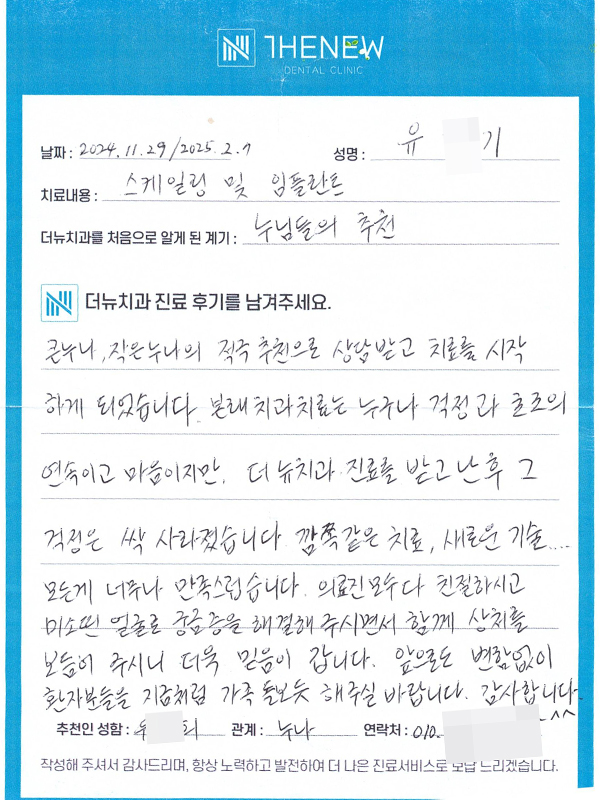 THENEW
DENTAL CLINIC
날짜 : 2024. 11. 29 / 2025. 2. 7 성명 : 유 기
치료내용 : 스케일링 및 임플란트
더뉴치과를 처음으로 알게 된 계기 : 누님들의 추천
더뉴치과 진료 후기를 남겨주세요.
큰누나, 작은누나의 적극 추천으로 상담받고 치료를 시작
하게 되었습니다. 본래 치과치료는 누구나 걱정과 초조의
연속이고 마음이지만, 더뉴치과 진료를 받고 난 후 그
걱정은 싹 사라졌습니다. 깜쪽같은 치료, 새로운 기술....
모든게 너무나 만족스럽습니다. 의료진 모두 다 친절하시고
미소띤 얼굴로 궁금증을 해결해 주시면서 함께 상처를
보듬어 주시니 더욱 믿음이 갑니다. 앞으로도 변함없이
환자분들을 지금처럼 가족 돌보듯 해주실 바랍니다. 감사합니다.^^
추천인 성함 : 희 관계 : 누나 연락처 : 010.
작성해 주셔서 감사드리며, 항상 노력하고 발전하여 더 나은 진료서비스로 보답 드리겠습니다.